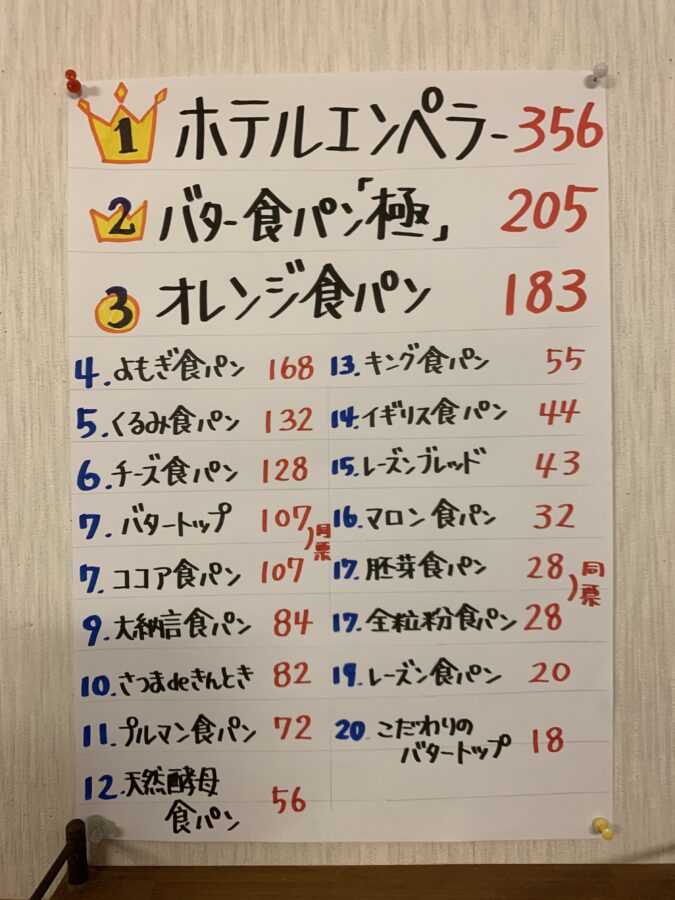 1 ホテルエンペラー 356
2 バター食パン「極」 205
3 オレンジ食パン 183
4.よもぎ食パン 168
5.くるみ食パン 132
6.チーズ食パン 128
7.バタートップ 107
7.ココア食パン 107
)同票
9.大納言食パン 84
10.さつまdeきんとき 82
11.プルマン食パン 72
12.天然酵母
食パン 56
13.キング食パン 55
14.イギリス食パン 44
15.レーズンブレッド 43
16.マロン食パン 32
17.胚芽食パン 28
17.全粒粉食パン 28
)同票
19.レーズン食パン 20
20.こだわりの
バタートップ 18